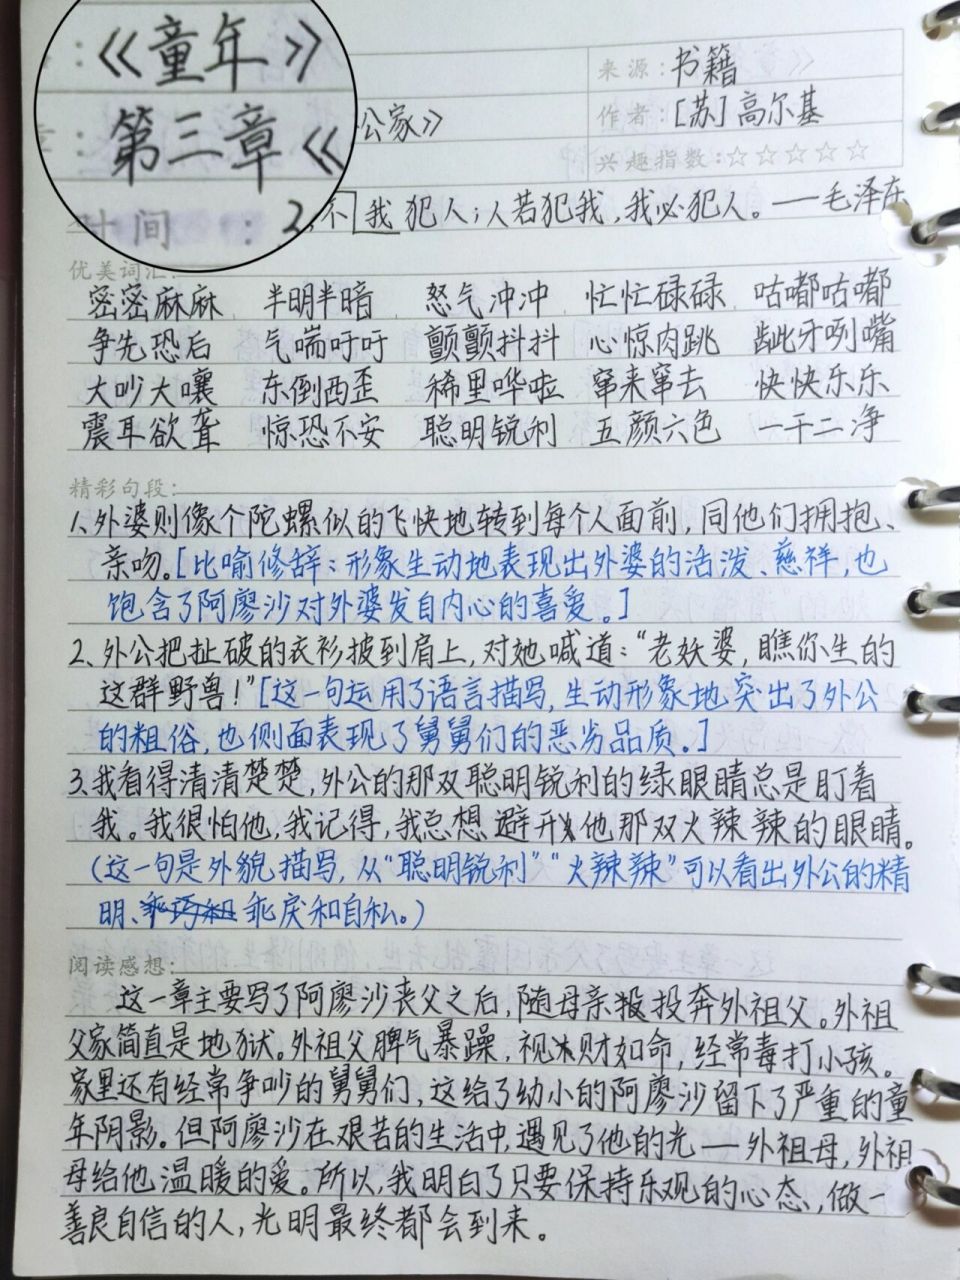 ：《童年》
来源：书籍
：第三章《
公家》
作者：[苏]高尔基
兴趣指数：☆☆☆☆☆
时间：
2、不我犯人；人若犯我，我必犯人。——毛泽东
优美词汇：
密密麻麻 半明半暗 怒气冲冲 忙忙碌碌 咕嘟咕嘟
争先恐后 气喘吁吁 颤颤抖抖 心惊肉跳 龇牙咧嘴
大吵大嚷 东倒西歪 稀里哗啦 窜来窜去 快快乐乐
震耳欲聋 惊恐不安 聪明锐利 五颜六色 一干二净
精彩句段：
1、外婆则像个陀螺似的飞快地转到每个人面前，同他们拥抱、
亲吻。[比喻修辞：形象生动地表现出外婆的活泼、慈祥，也
饱含了阿廖沙对外婆发自内心的喜爱。]
2、外公把扯破的衣衫披到肩上，对她喊道：“老妖婆，瞧你生的
这群野兽！”[这一句运用了语言描写，生动形象地突出了外公
的粗俗，也侧面表现了舅舅们的恶劣品质。]
3、我看得清清楚楚，外公的那双聪明锐利的绿眼睛总是盯着
我。我很怕他，我记得，我总想避开他那双火辣辣的眼睛。
(这一句是外貌描写，从“聪明锐利”“火辣辣”可以看出外公的精
明、乖戾和自私。)
阅读感想：
这一章主要写了阿廖沙丧父之后，随母亲投奔外祖父。外祖
父家简直是地狱。外祖父脾气暴躁，视财如命，经常毒打小孩。
家里还有经常争吵的舅舅们，这给了幼小的阿廖沙留下了严重的童
年阴影。但阿廖沙在艰苦的生活中，遇见了他的光——外祖母，外祖
母给他温暖的爱。所以，我明白了只要保持乐观的心态，做一
善良自信的人，光明最终都会到来。